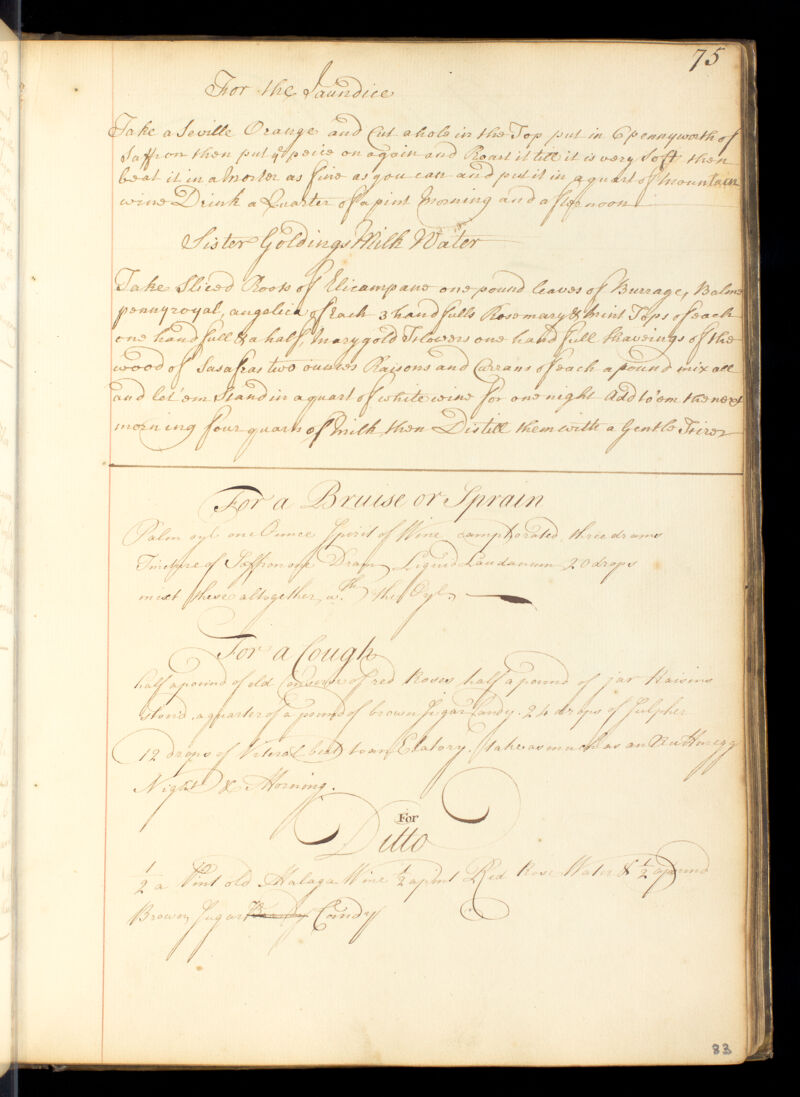 75
For the Jaundice
Take a Seville Orange and Cut a hole in the Top put in 6 pennyworth of
Saffron then put ye peice on again and Roast it till it is very Soft then
beat it in a Morter as fine as you can and put it in a quart of Mountain
wine Drink a Quarter of a pint Morning and afternoon
Sister Goldings Milk Water
Take Sliced Roots of Elicampane one pound leaves of Burrage, Balme
pennyroyal, angelica of Each 3 handfulls Rosemary & Mint Tops of each
one handfull & a half Marygold Flowers one handfull Shaveings of the
wood of Sasafras two ounces Raisons and Currans of each a pound mix all
and let 'em Stand in a quart of white wine for one night Add to 'em the next
morning four quarts of Milk then Distill them with a Gentle Firer
For a Bruise or Sprain
Palm oyl one Ounce Spirit of Wine camphorated three drams
Tincture of Saffron one Dram Liquid Laudanum 20 drops
mixt these altogether wth the Oyl
For a Cough
half a pound of old Conserve of red Roses half a pound of jar Raisins
ston'd a quarter of a pound of brown Sugar Candy. 24 drops of Sulpher
12 drops of Viteral beat to an Elatory. take as much as an
Night & Morning.
For
Ditto
1/2 a Pint old Malaga Wine 1/2 a pint Red Rose Water & 1/2 a pound
Brown Sugar Candy
83